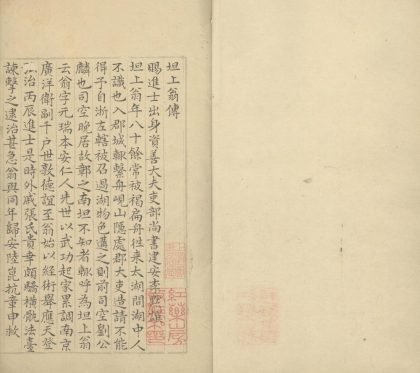 坦上翁傳
賜進士出身資善大夫吏部尚書建安李默撰
坦上翁年八十餘常被褐扁舟往來太湖間湖中人
不識也入郡城輒繫舟峴山隱處郡大吏造請不能
得予自浙左轄被召過湖物色遇之則前司空劉公
麟也司空晚居故鄣之南坦不知者輒呼為坦上翁
云翁字元瑞本安仁人先世以武功起家累調南京
廣洋衛副千戶世敦德誼至翁始以經術舉應天登
治丙辰進士是時外戚張氏貴幸頗驕橫骫法臺
諫擊之逮治甚急翁與同年歸安陸崑抗章申救